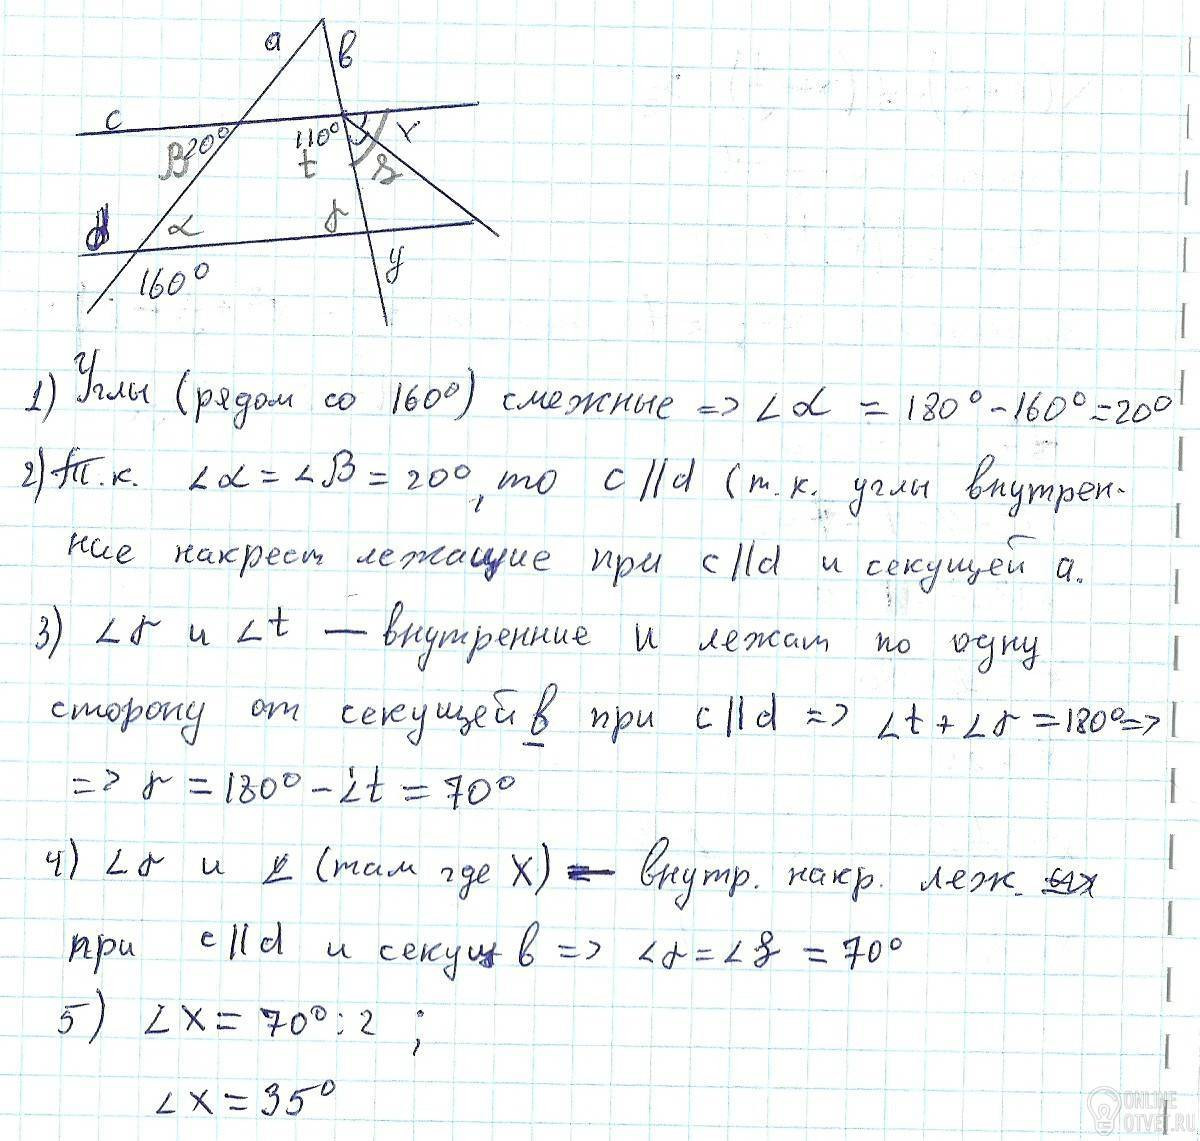 a
в
c
20°
110°
x
β
t
γ
d
α
y
160°
1) Углы (рядом со 160°) смежные => ∠α = 180° - 160° = 20°
2) Т.к. ∠α = ∠β = 20°, то c || d (т.к. углы внутрен-
ние накрест лежащие при c || d и секущей a.
3) ∠γ и ∠t — внутренние и лежат по одну
сторону от секущей в при c || d => ∠t + ∠γ = 180° =>
=> γ = 180° - ∠t = 70°
4) ∠γ и ∠ (там где X) — внутр. накр. леж.
при c || d и секущ в => ∠γ = ∠ = 70°
5) ∠X = 70° : 2 ;
∠X = 35°
ONLINE
OTVET.RU